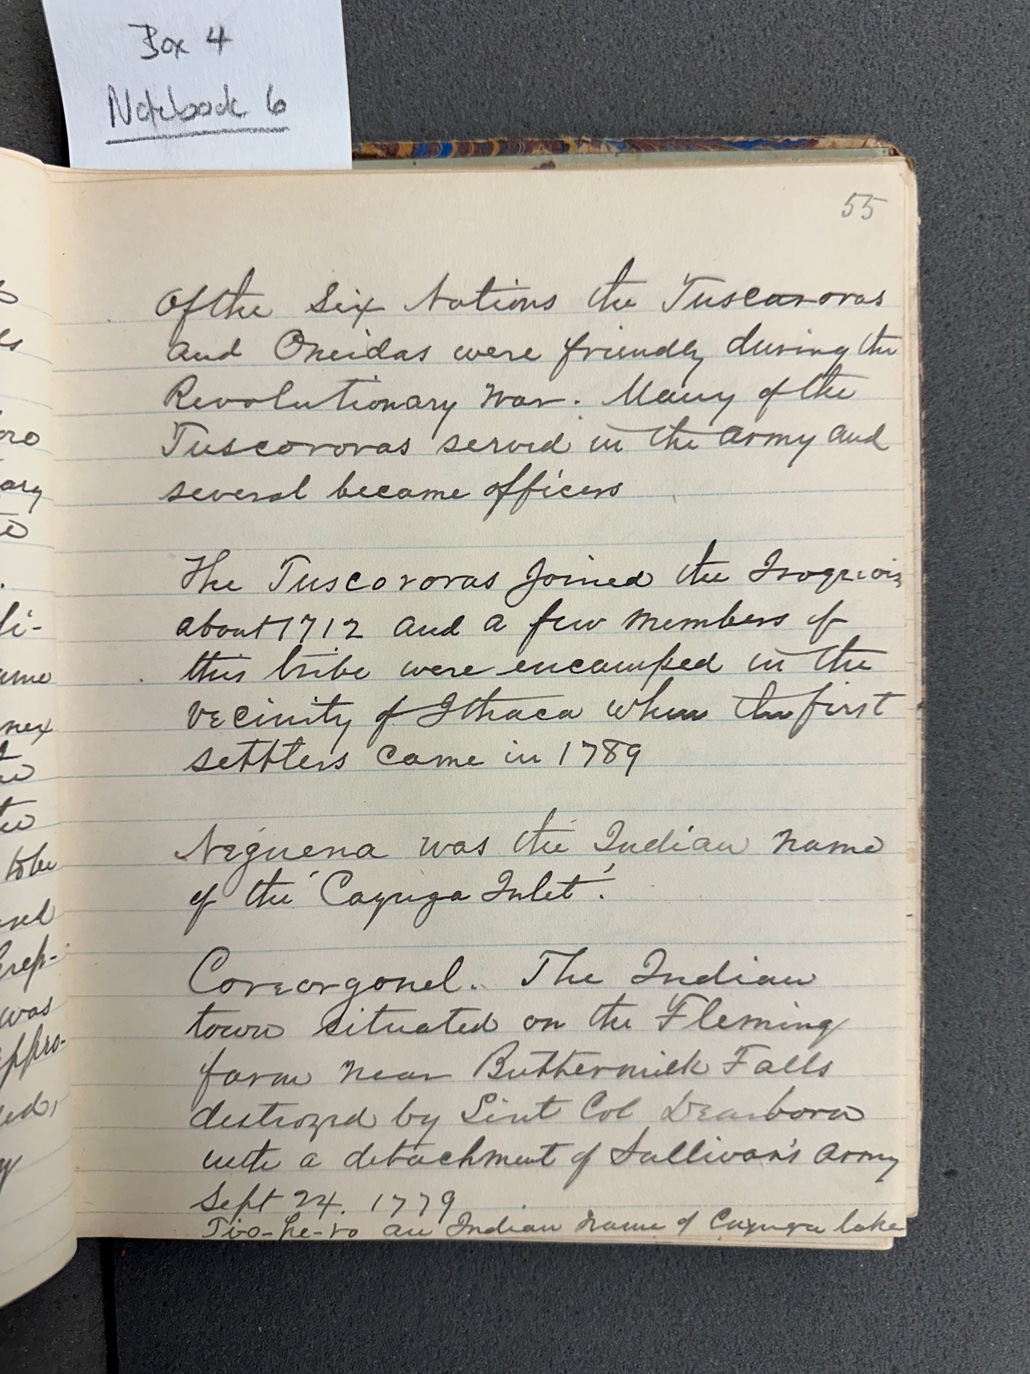 Box 4
Notebook 6
55
Of the Six Nations the Tuscaroras
and Oneidas were friendly during the
Revolutionary War. Many of the
Tuscororas served in the army and
several became officers
The Tuscororas joined the Iroquois
about 1712 and a few members of
this tribe were encamped in the
vecinity of Ithaca when the first
settlers came in 1789
Neguena was the Indian name
of the 'Cayuga Inlet'.
Coreorgonel. The Indian
town situated on the Fleming
farm near Buttermilk Falls
destroyed by Lieut Col Dearborn
with a detachment of Sullivan's Army
Sept 24. 1779
Tio-he-ro an Indian name of Cayuga lake